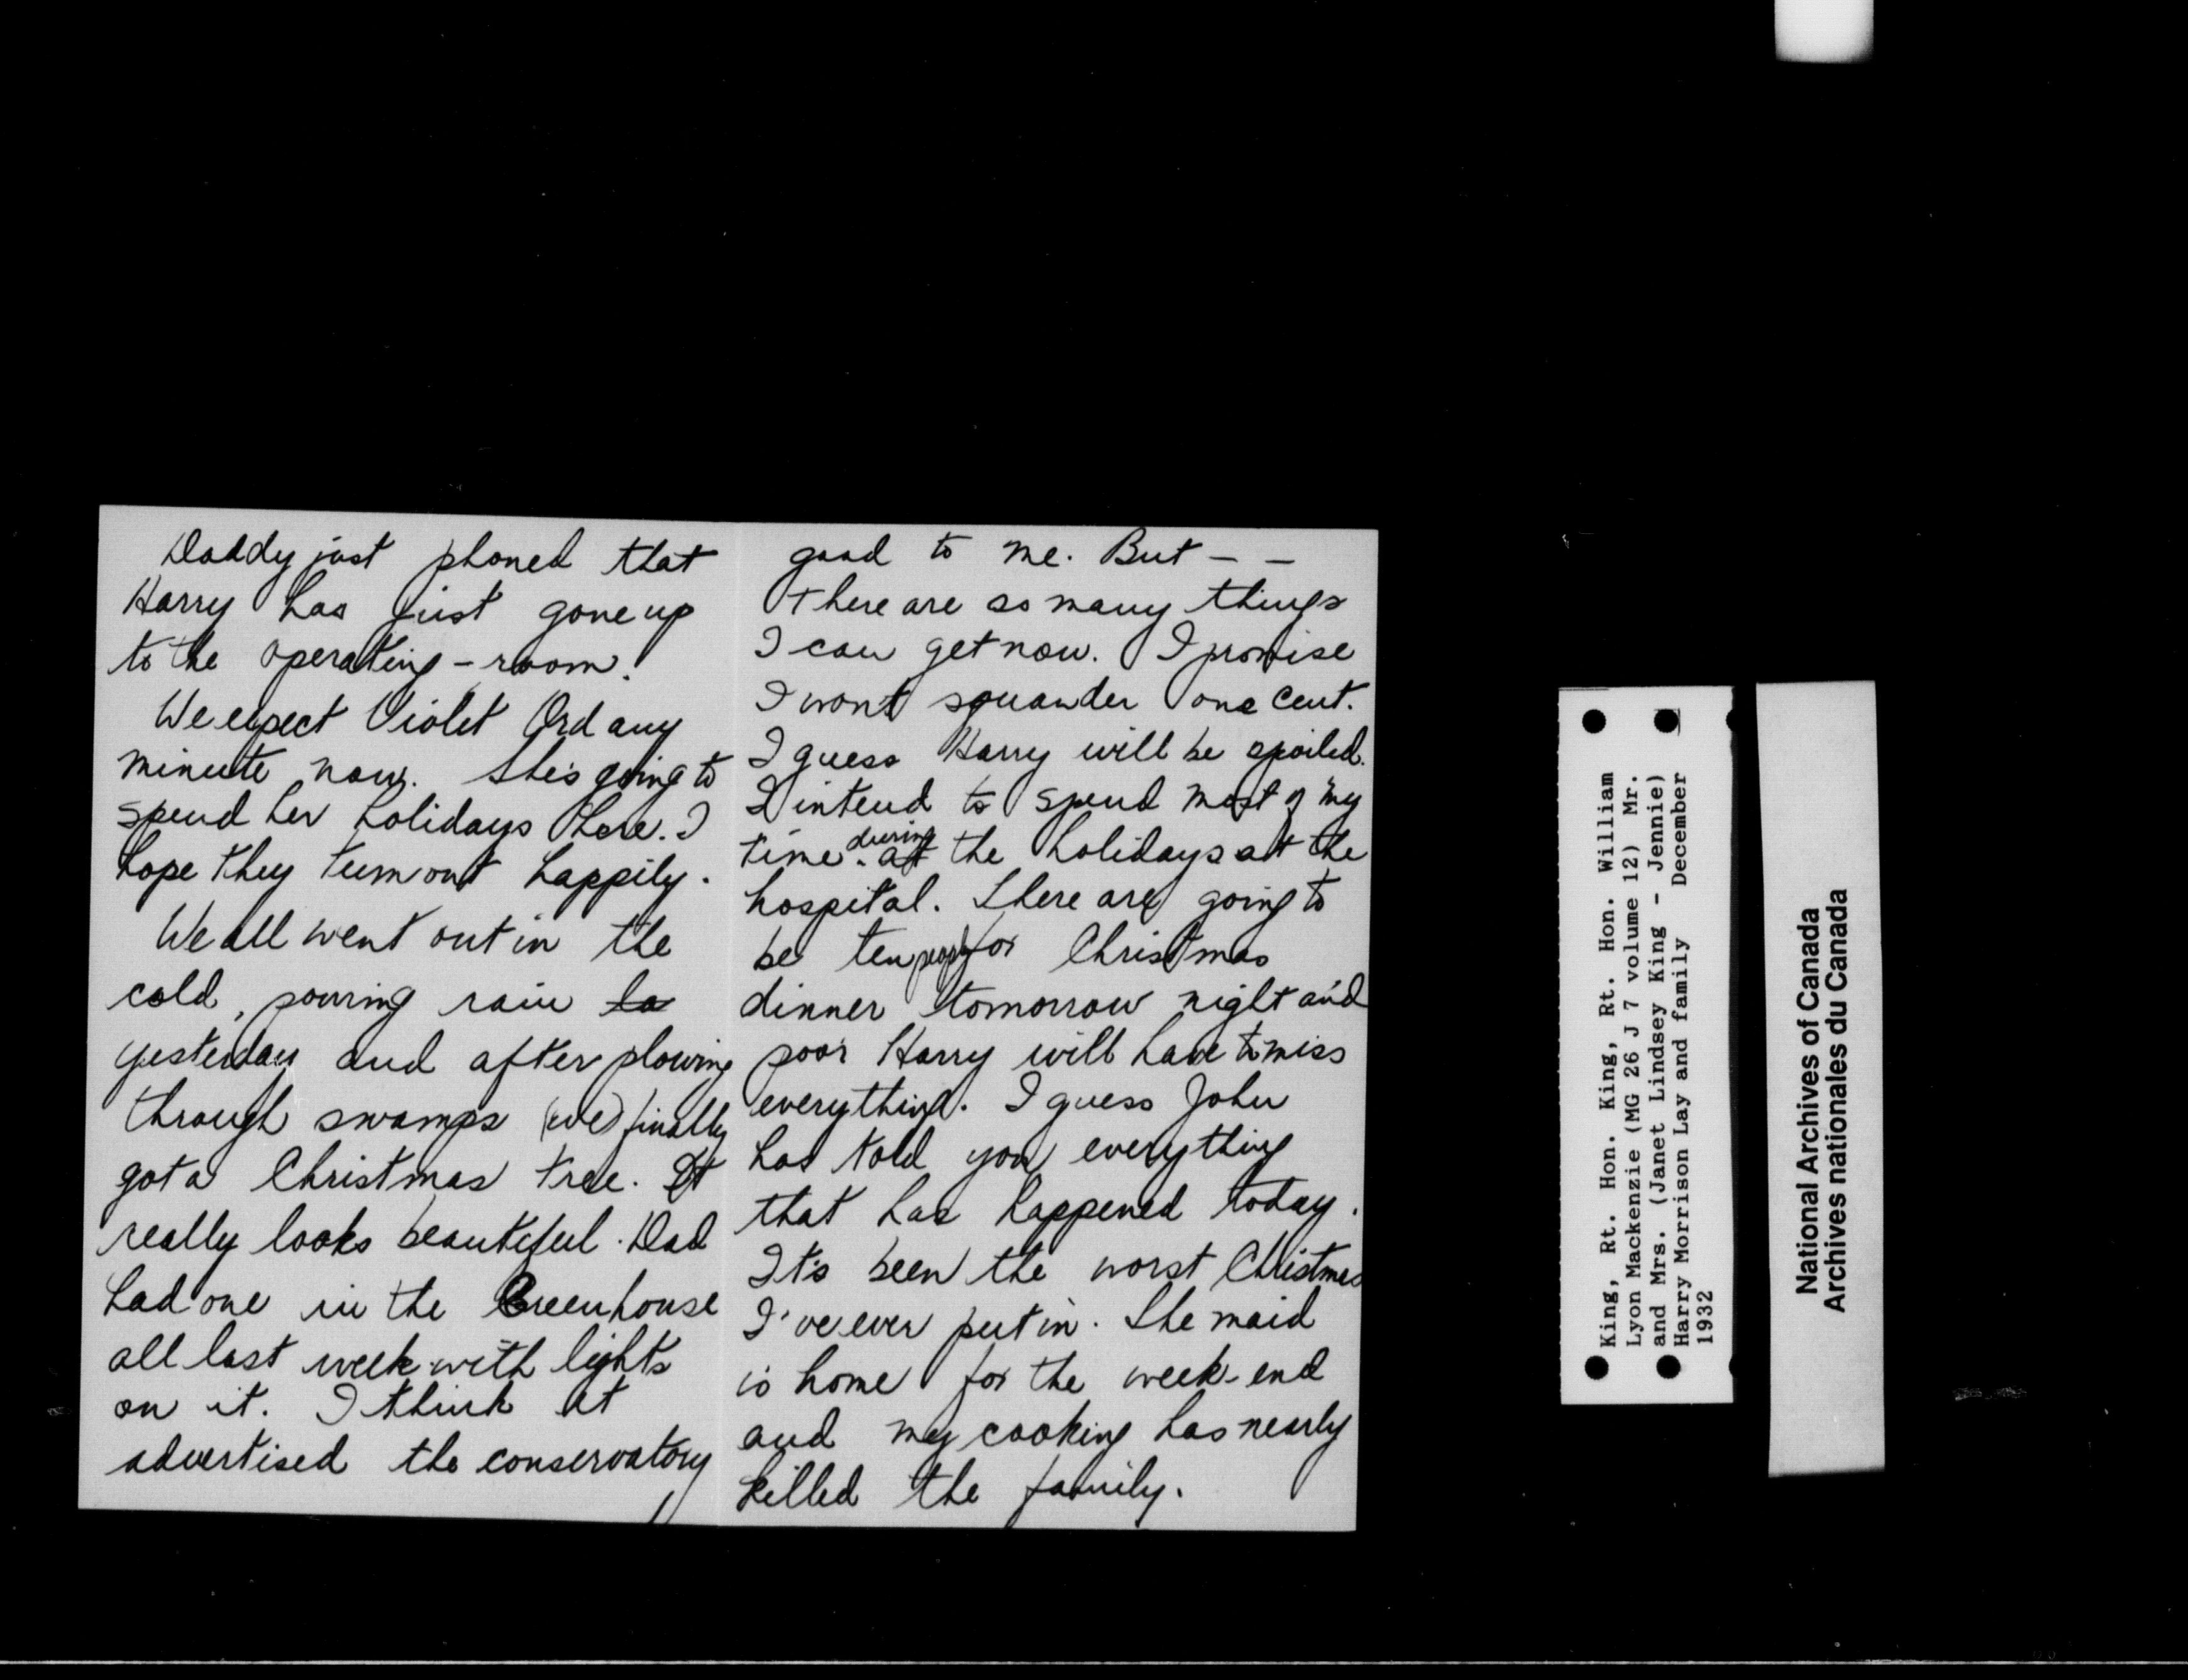 Daddy just phoned that
Harry has just gone up
to the operating-room.
We expect Violet Ord any
minute now. She's going to
spend her holidays here. I
hope they turn out happily.
We all went out in the
cold, pouring rain
yesterday and after plowing
through swamps (we) finally
got a Christmas tree. It
really looks beautiful. Dad
had one in the Greenhouse
all last week with lights
on it. I think it
advertised the conservatory
good to me. But - -
There are so many things
I can get now. I promise
I wont squander one cent.
I guess Harry will be spoiled.
I intend to spend most of my
time during the holidays at the
hospital. There are going to
be ten people for Christmas
dinner tomorrow night and
poor Harry will have to miss
everything. I guess John
has told you everything
that has happened today.
It's been the worst Christmas
I've ever put in. The maid
is home for the week-end
and my cooking has nearly
killed the family.
King, Rt. Hon. King, Rt. Hon. William
Lyon Mackenzie (MG 26 J 7 volume 12) Mr.
and Mrs. (Janet Lindsey King - Jennie)
Harry Morrison Lay and family December
1932
National Archives of Canada
Archives nationales du Canada